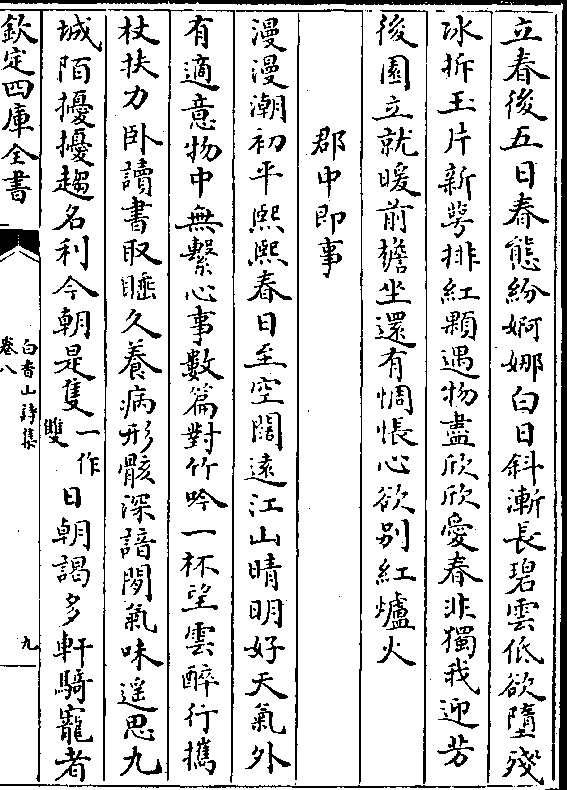 立春後五日春態紛婀娜白日斜漸長碧雲低欲墮殘
冰拆玉片新萼排紅顆遇物盡欣欣愛春非獨我迎芳
後園立就暖前簷坐還有惆悵心欲别紅爐火
郡中即事
漫漫潮初平熙熙春日至空闊遠江山晴明好天氣外
有適意物中無繫心事數篇對竹吟一杯望雲醉行攜
杖扶力卧讀書取睡久養病形骸深諳閒氣味遥思九
城陌擾擾趨名利今朝是隻一作雙日朝謁多軒騎寵者
欽定四庫全書
白香山詩集
卷八
九